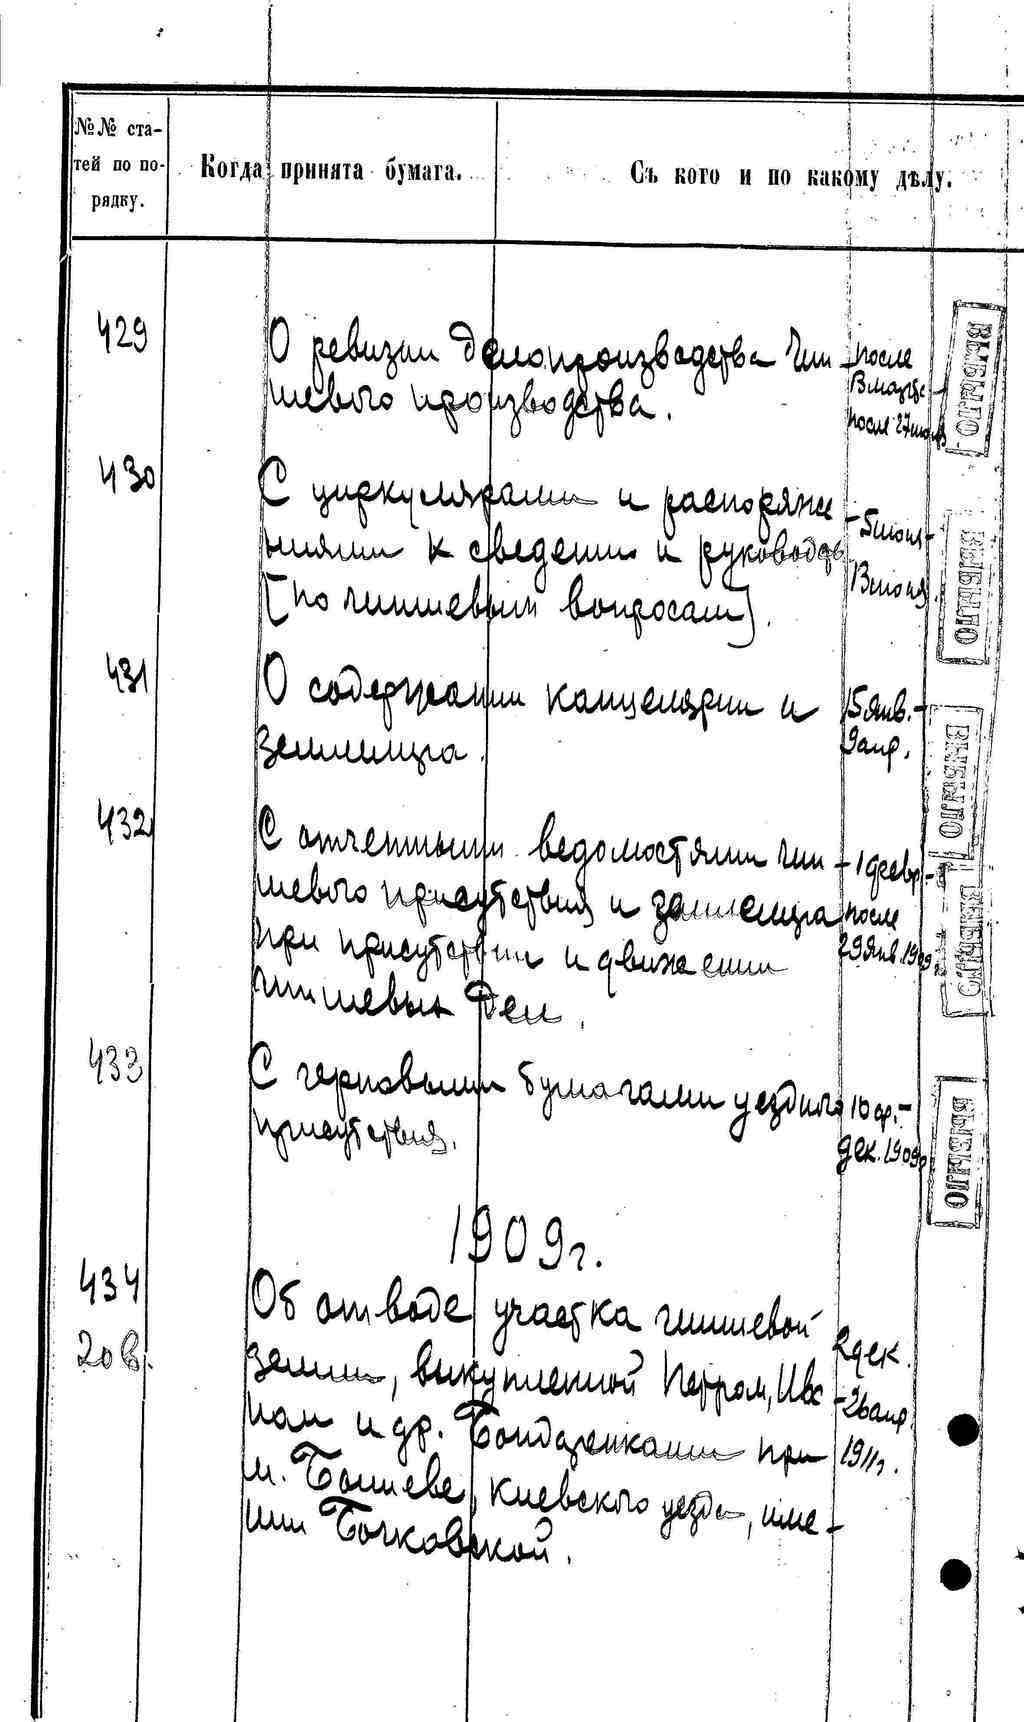 №№ ста-
тей по по-
рядку.
Когда принята бумага.
Съ кого и по какому дѣлу.
429
О ревизии делопроизводства Чин
шевого производства.
после
13 марта-
после 27 июня
ВЫБЫЛО
430
С циркулярами и распоряже
ниями к сведению и руководству
[по чиншевым вопросам].
- 5 июня -
13 июня.
ВЫБЫЛО
431
О содержании канцелярии и
землемера.
15 янв. -
9 апр.
ВЫБЫЛО
432
С отчетными ведомостями Чин
шевого присутствия и землемера
при присутствии и движении
чиншевых дел.
- 1 февр. -
после
29 янв. 1909
ВЫБЫЛО
433
С черновыми бумагами уездного
присутствия.
10 ф. -
дек. 1909
ВЫБЫЛО
1909 г.
434
20 в.
Об отводе участка чиншевой
земли, выкупленной Петром, Ива
ном и др. Бондаренками при
м. Бышеве, Киевского уезда, име-
нии Бочковской.
2 дек.
- 26 апр.
1911 г.